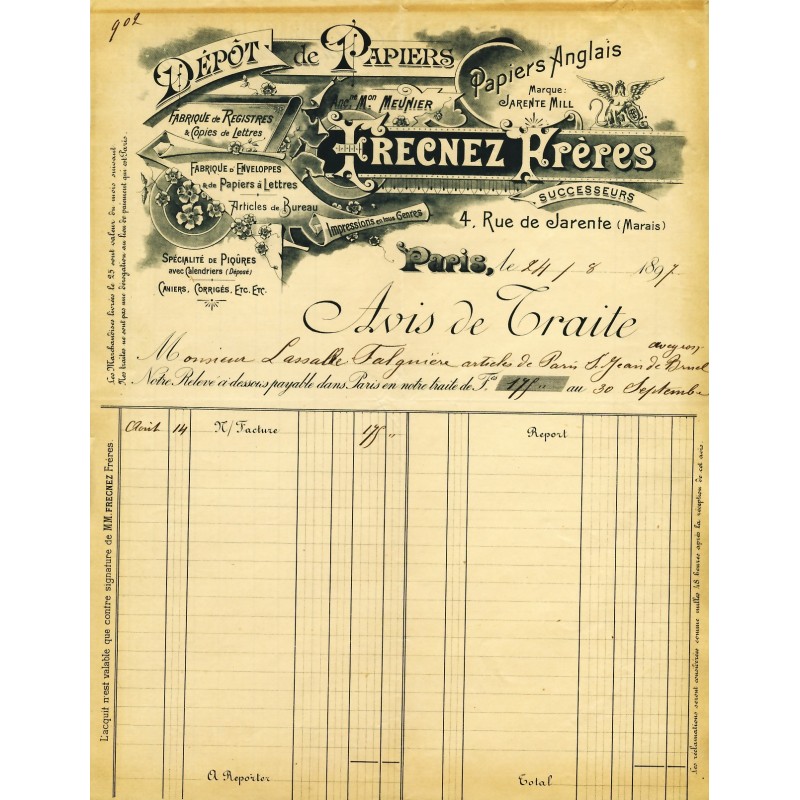 902
DÉPÔT de PAPIERS
Papiers Anglais
Marque:
JARENTE MILL
Ancne Mon MEUNIER
FABRIQUE de REGISTRES
& Copies de Lettres
FRECNEZ Frères
FABRIQUE D'ENVELOPPES
& de Papiers à Lettres
SUCCESSEURS
Articles de Bureau
Impressions en tous Genres
4, Rue de Jarente (Marais)
SPÉCIALITÉ DE PIQÛRES
avec Calendriers (Déposé)
CAHIERS, CORRIGÉS, ETC. ETC.
Paris, le 24 / 8 1897
Avis de Traite
Monsieur Lassalle Falguière articles de Paris St Jean de Bruel
aveyron
Notre Relevé ci dessous payable dans Paris en notre traite de Fcs 175 " au 30 Septembre
Août 14 N/ Facture 175 "
Report
A Reporter
Total
Les Marchandises livrées le 25 sont valeur du mois suivant.
Nos traites ne sont pas une dérogation au lieu de paiement qui est Paris.
L'acquit n'est valable que contre signature de MM. FRECNEZ Frères.
Les réclamations seront considérées comme nulles 48 heures après la réception de cet avis.